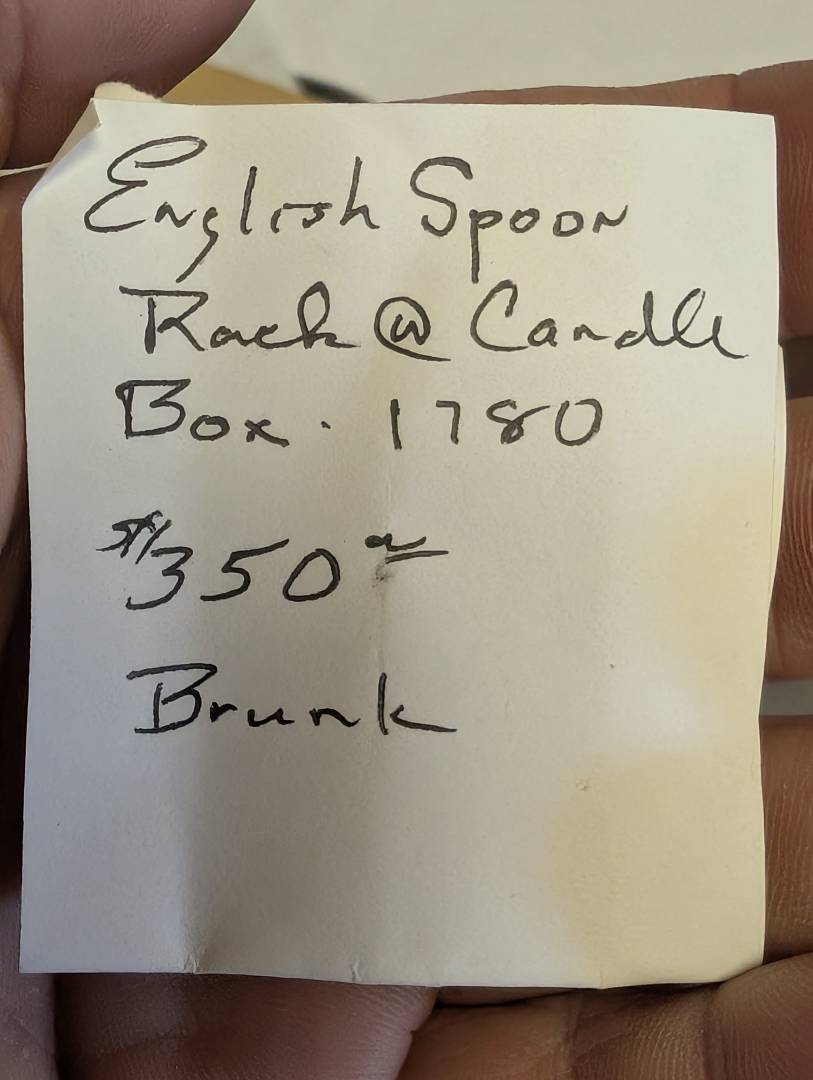 English Spoon
Rack @ Candle
Box. 1780
$350 00
Brunk